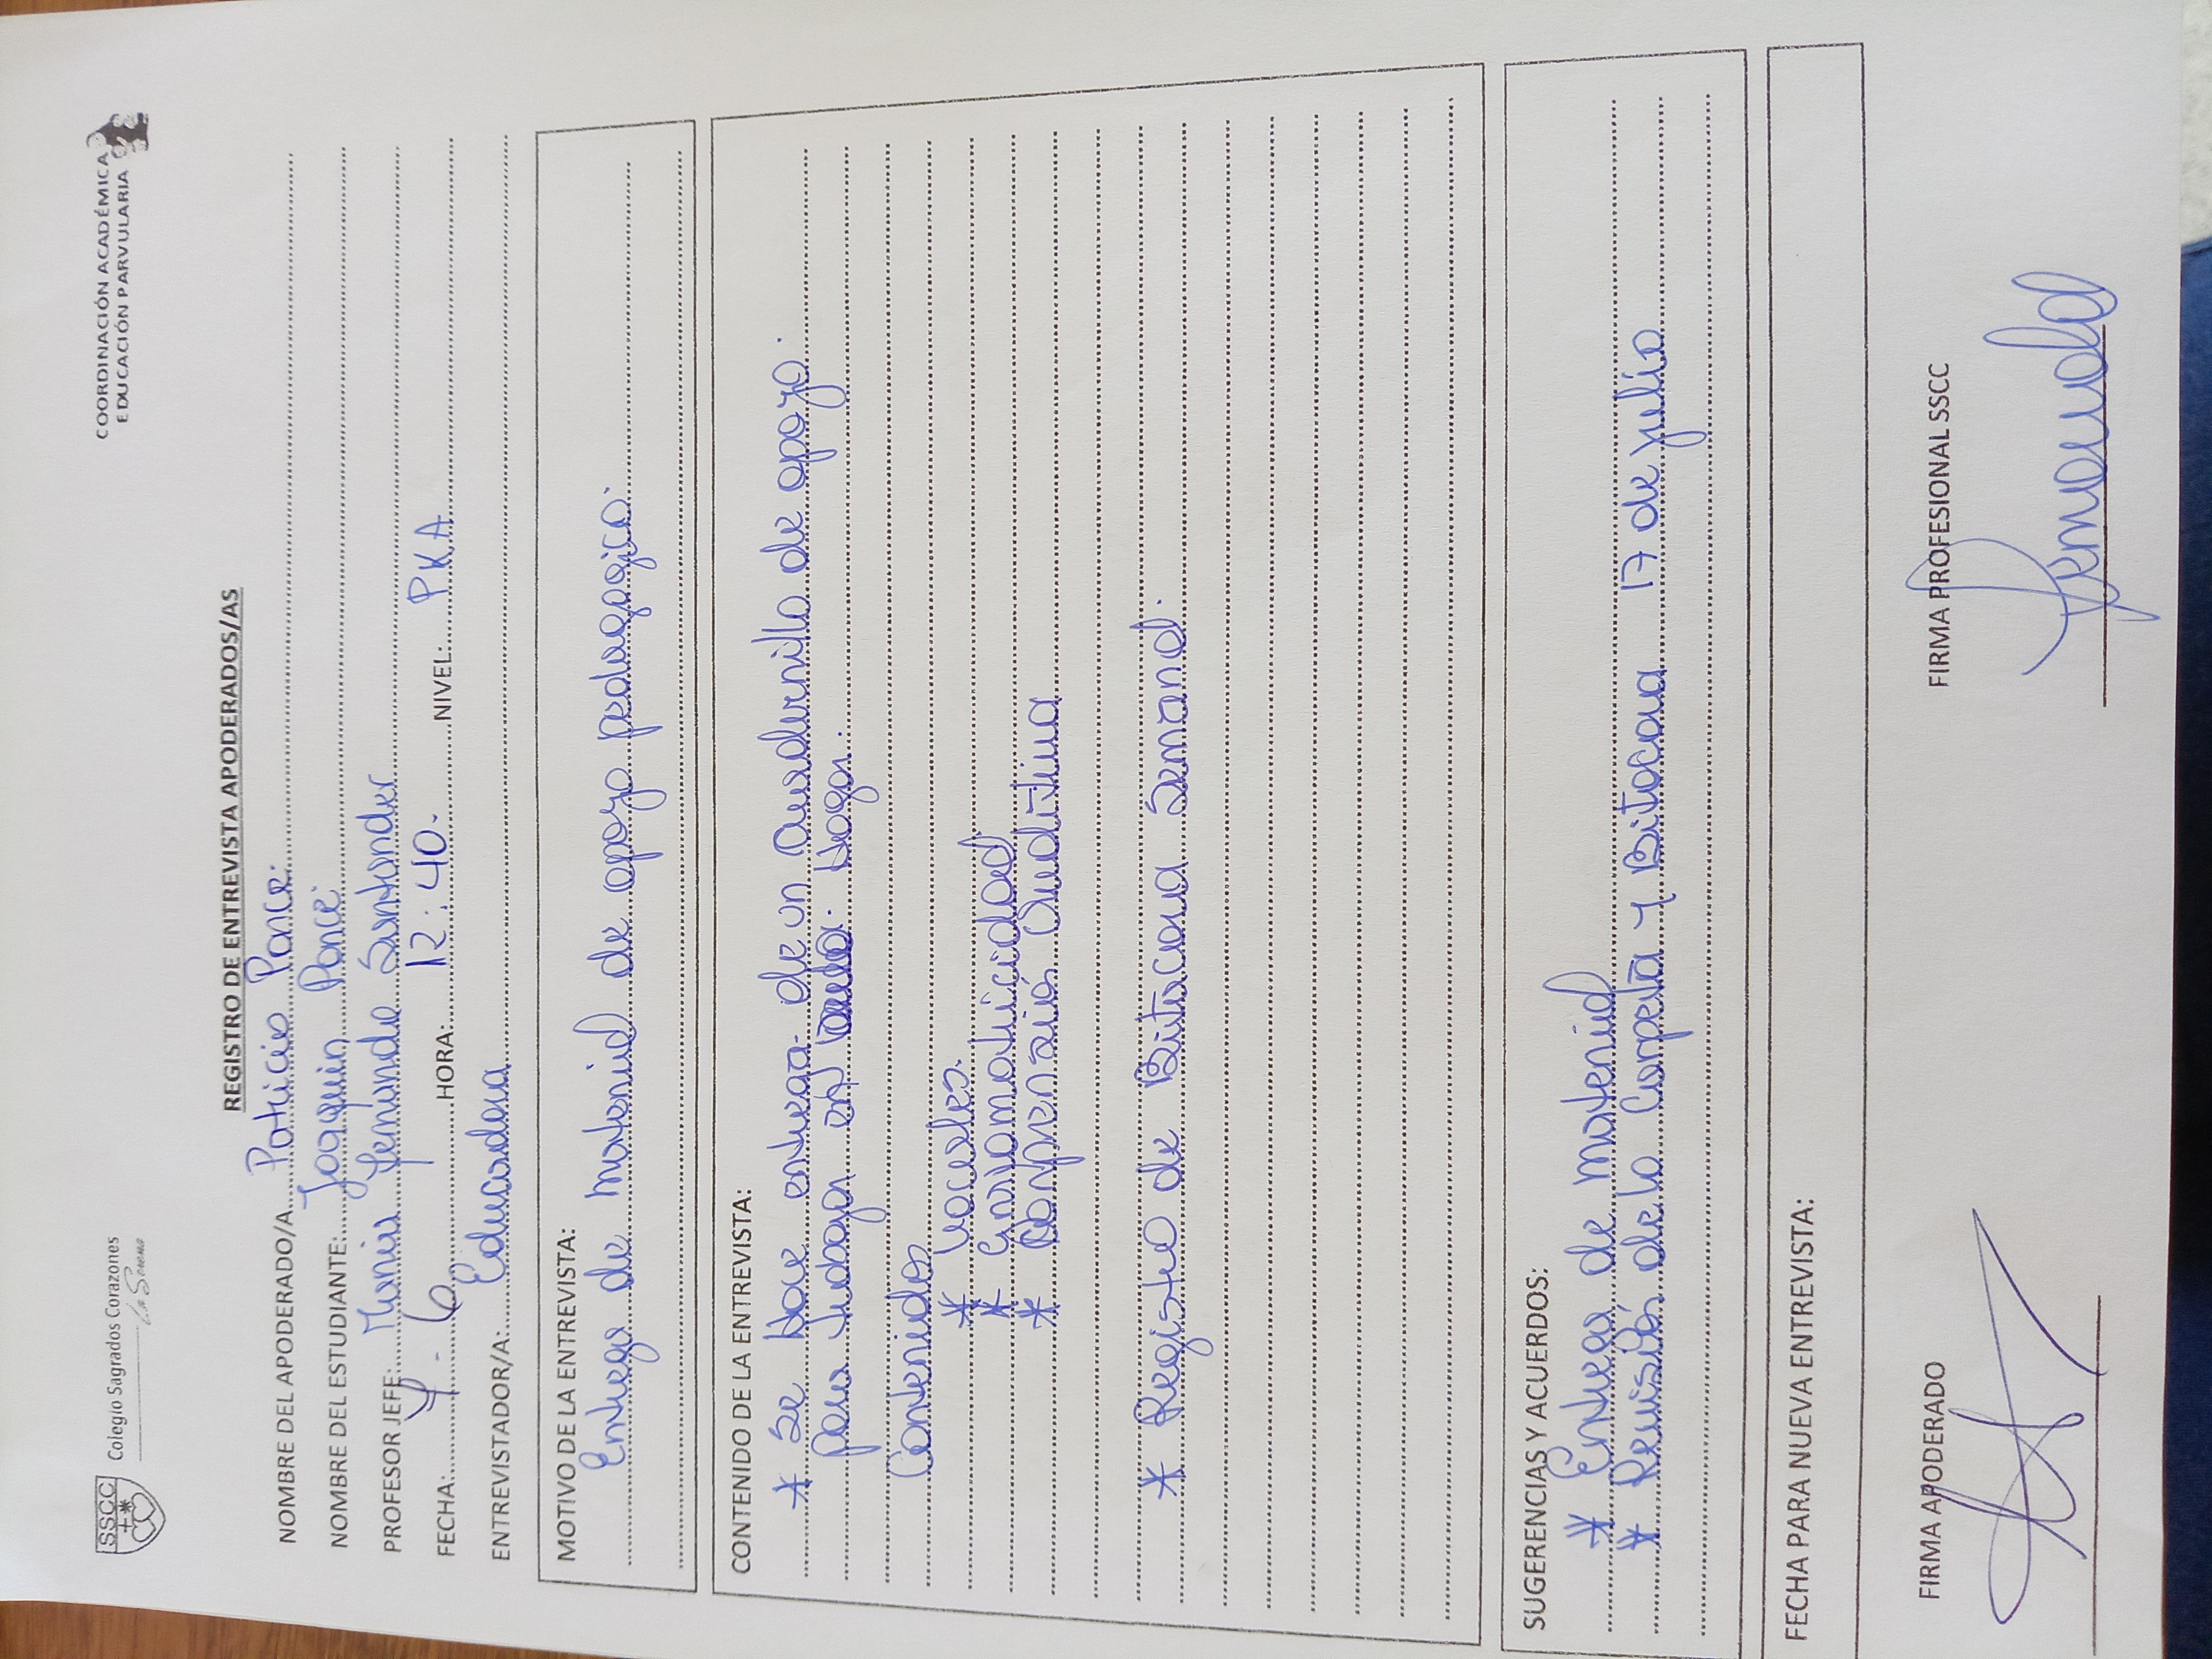 SSCC
Colegio Sagrados Corazones
La Serena
COORDINACIÓN ACADÉMICA
EDUCACIÓN PARVULARIA
REGISTRO DE ENTREVISTA APODERADOS/AS
NOMBRE DEL APODERADO/A.... Patricio Ponce.
NOMBRE DEL ESTUDIANTE:.... Joaquin Ponce.
PROFESOR JEFE:.... Maria Fernanda Santander
FECHA:.... 4 - 6 HORA:.... 12:40. NIVEL: PKA
ENTREVISTADOR/A:.... Educadora
MOTIVO DE LA ENTREVISTA:
Entrega de material de apoyo pedagogico.
CONTENIDO DE LA ENTREVISTA:
* Se hace entrega de un cuadernillo de apoyo.
para trabajar en hogar.
Contenidos
* Vocales.
* Grafomotricidad
* Comprensión Auditiva
* Registro de Bitacora Semanal.
SUGERENCIAS Y ACUERDOS:
* Entrega de material
* Revisión de la Carpeta y Bitacora 17 de julio
FECHA PARA NUEVA ENTREVISTA:
FIRMA APODERADO
FIRMA PROFESIONAL SSCC